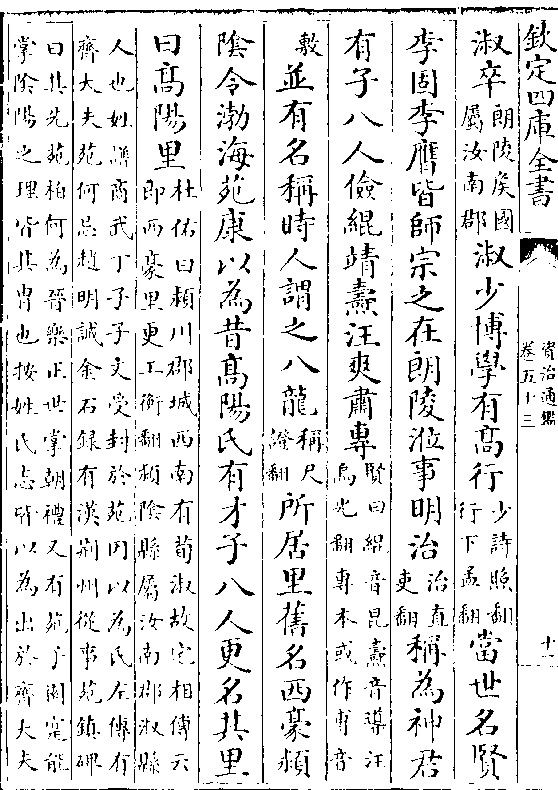 欽定四庫全書
資治通鑑
卷五十三
十一
淑卒朗陵侯國屬汝南郡淑少博學有髙行少詩照翻行下孟翻當世名賢
李固李膺皆師宗之在朗陵涖事明治治直吏翻稱為神君
有子八人儉緄靖燾汪爽肅專賢曰緄音昆燾音導汪烏光翻專本或作旉音
敷並有名稱時人謂之八龍稱尺證翻所居里舊名西豪潁
隂令渤海苑康以為昔髙陽氏有才子八人更名其里
曰髙陽里杜佑曰潁川郡城西南有荀淑故宅相傳云即西豪里更工衡翻潁陰縣屬汝南郡淑縣
人也姓譜商武丁子子文受封於苑因以為氏左傳有齊大夫苑何忌趙明誠金石録有漢荆州從事苑鎮碑
曰其先苑柏何為晉樂正世掌朝禮又有苑子園寔能掌陰陽之理皆其胄也按姓氏志所以為出於齊大夫